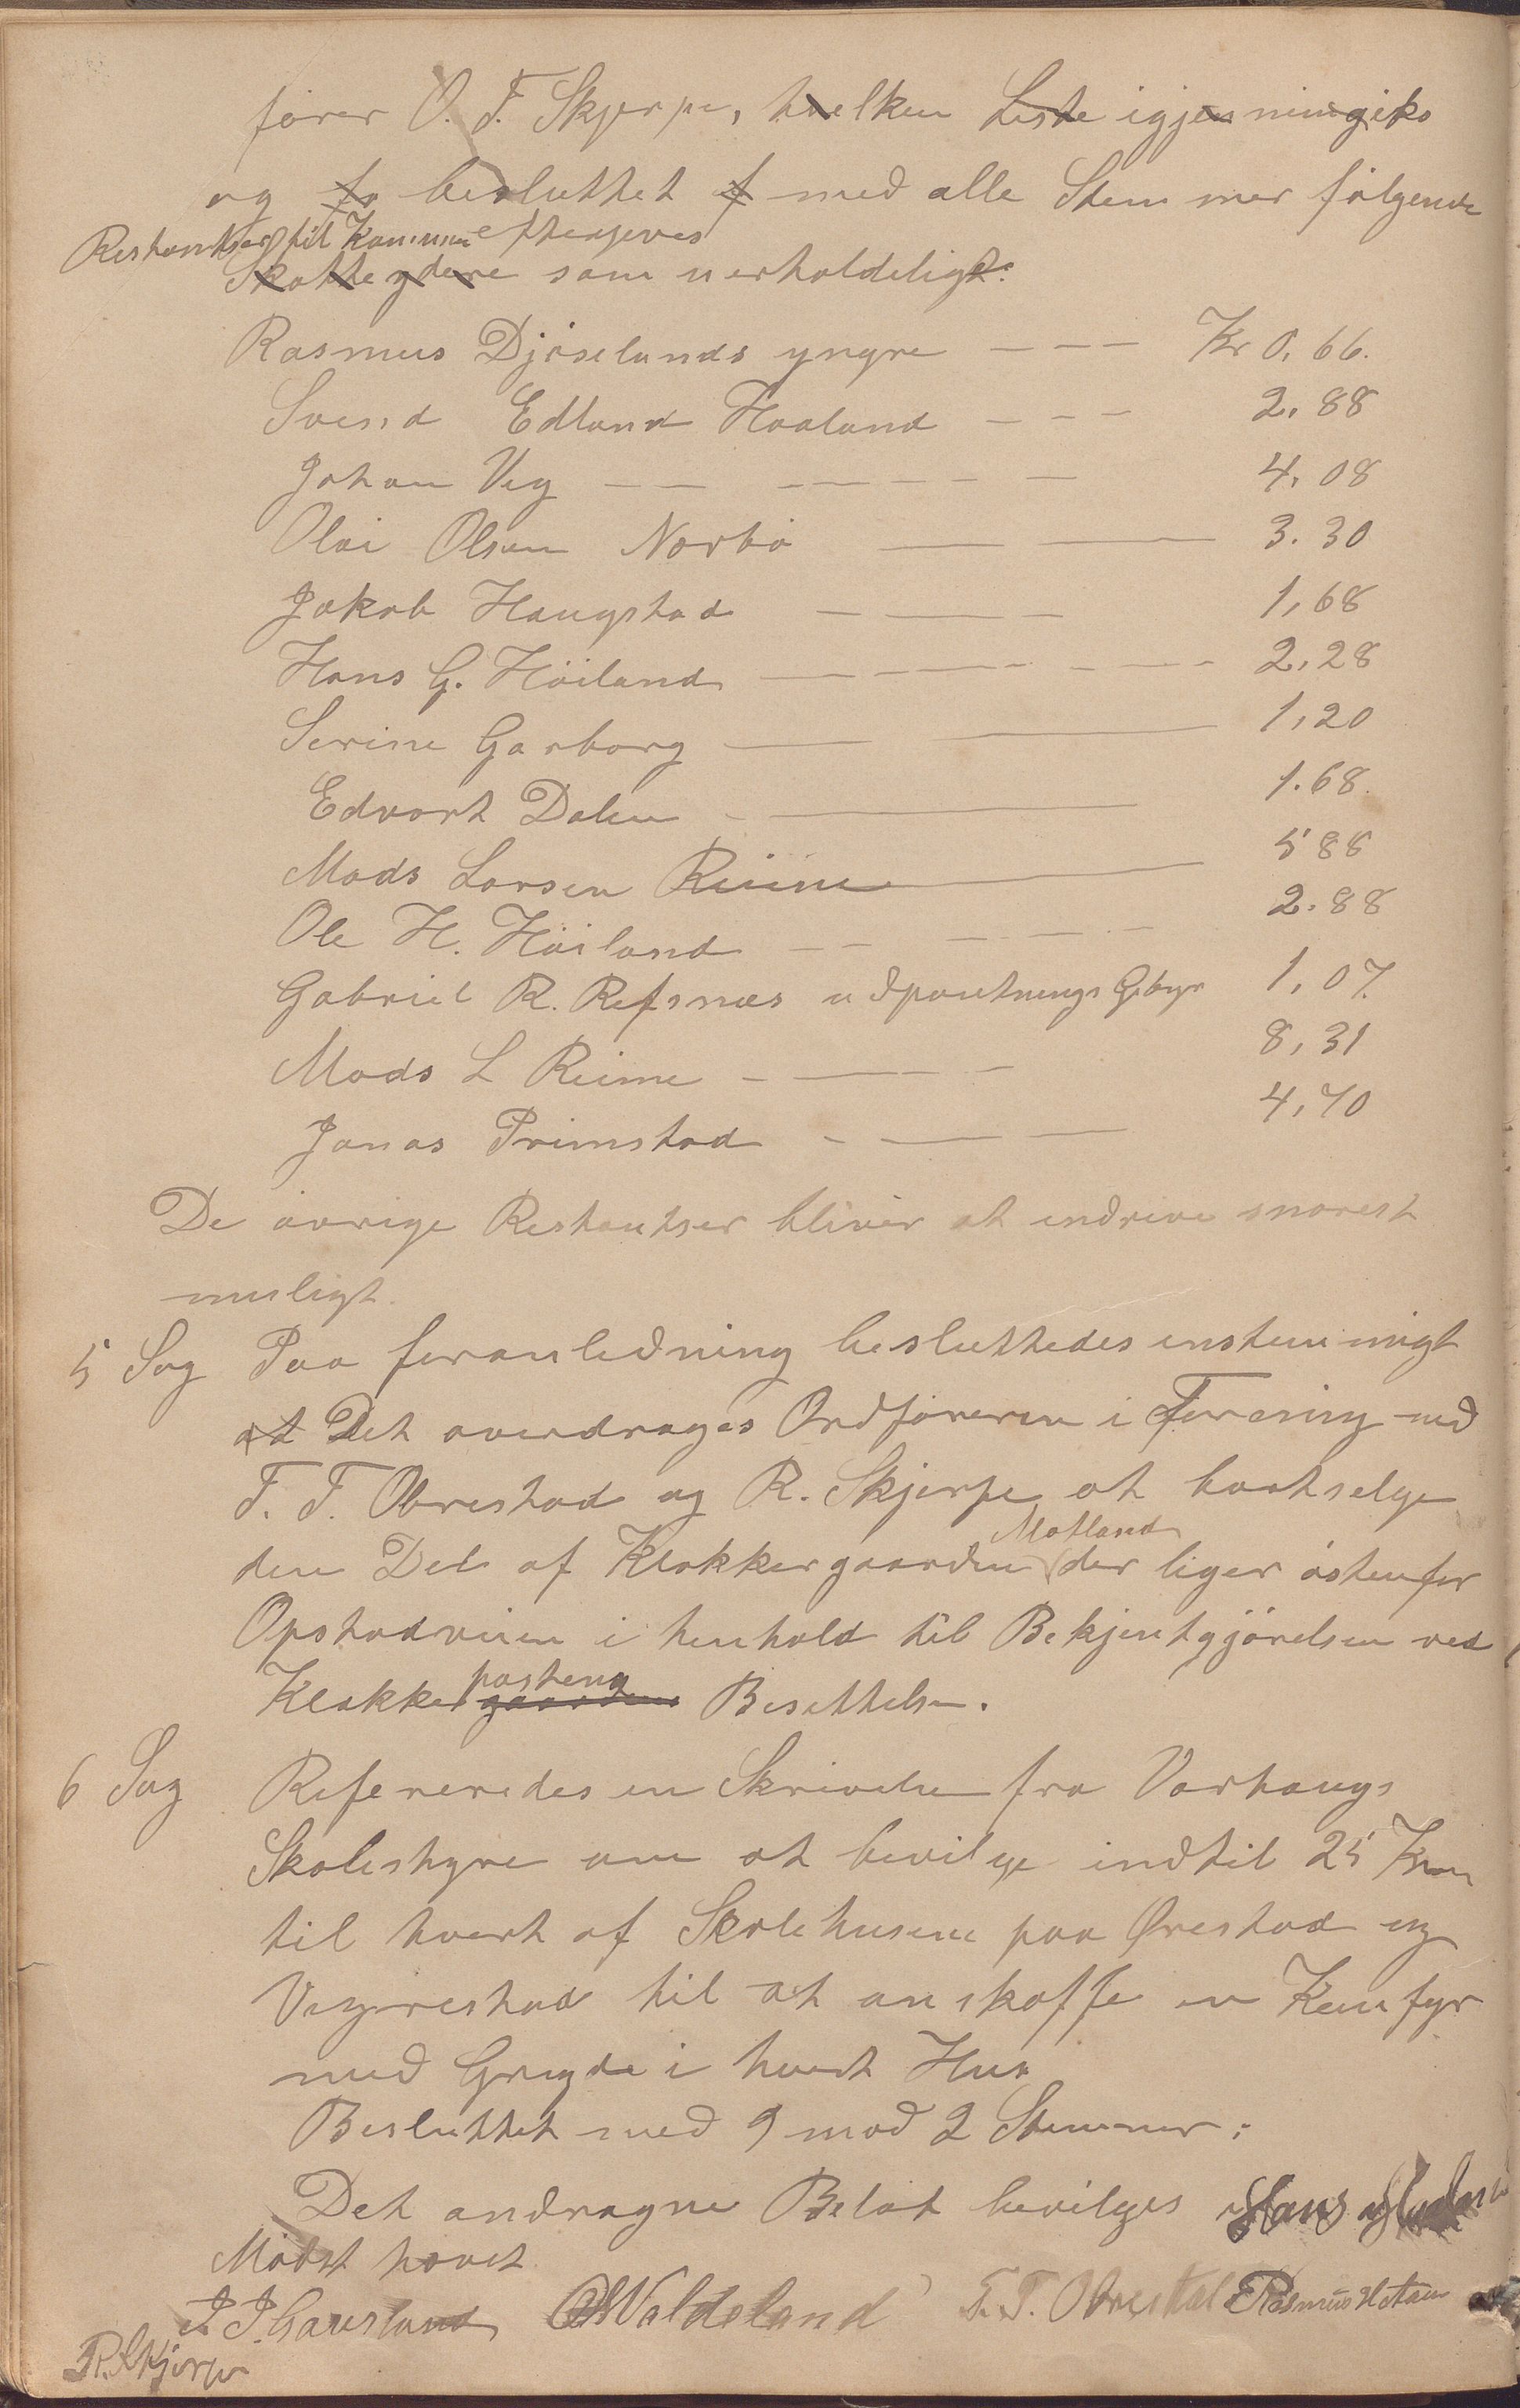 fører O. T. Skjerpe, hvelken Leste igjennimgiks
og fo besluttet f med alle Stemmer følgende
Restantser til Kommune eftergives
Skatteydere som uerholdeligt:
Rasmus Djøselands yngre - - - Kr 0,66.
Svend Edland Haaland - - - 2,88
Johan Vig - - - - - - - 4,08
Olai Olsen Nærbø — — 3.30
Jakob Haugstad - — - 1,68
Hans G. Höiland - - - - - - 2,28
Serine Garborg — — 1,20
Edvart Dalen - — 1.68.
Mads Larsen Reime — 5 88
Ole H. Höiland - - - - - 2.88
Gabriel R. Refsnæs udpantnings Gebyr 1,07.
Mads L Reime - — - - 8,31
Jonas Primstad - — — 4,70
De øvrige Restantser bliver at indrive snarest
muligt.
5 Sag Paa foranledning besluttedes enstemmigt
at Det overdrages Ordføreren i Forening med
T. T. Obrestad og R. Skjerpe at bortselge
Motland
den Del af Klokkergaarden der liger østenfor
Opstadveien i henhold til Bekjentgjørelsen ved
postens
Klokker gaardens Besettelse.
6 Sag Refereredes en Skrivelse fra Varhaugs
Skolestyre om at bevilge indtil 25 Kron
til hvert af Skolehusene paa Ørestad og
Vigrestad til at anskaffe en Komfyr
med Grygde i hvert Hus
Besluttet med 9 mod 2 Stemmer:
Det andragne Beløb bevilges Hans
Mødet hævet
J. J. Gausland OS Valdeland T. T. Obrestad Rasmus
R. Skjerpe